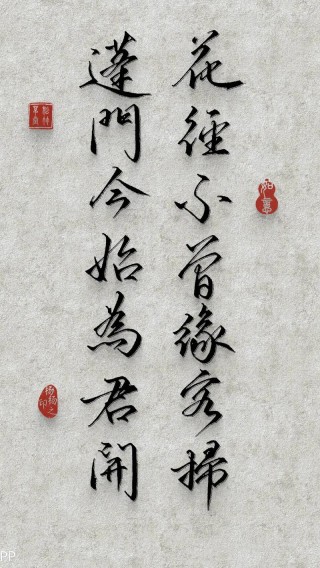 花徑不曾緣客掃
蓬門今始為君開
如意
PP